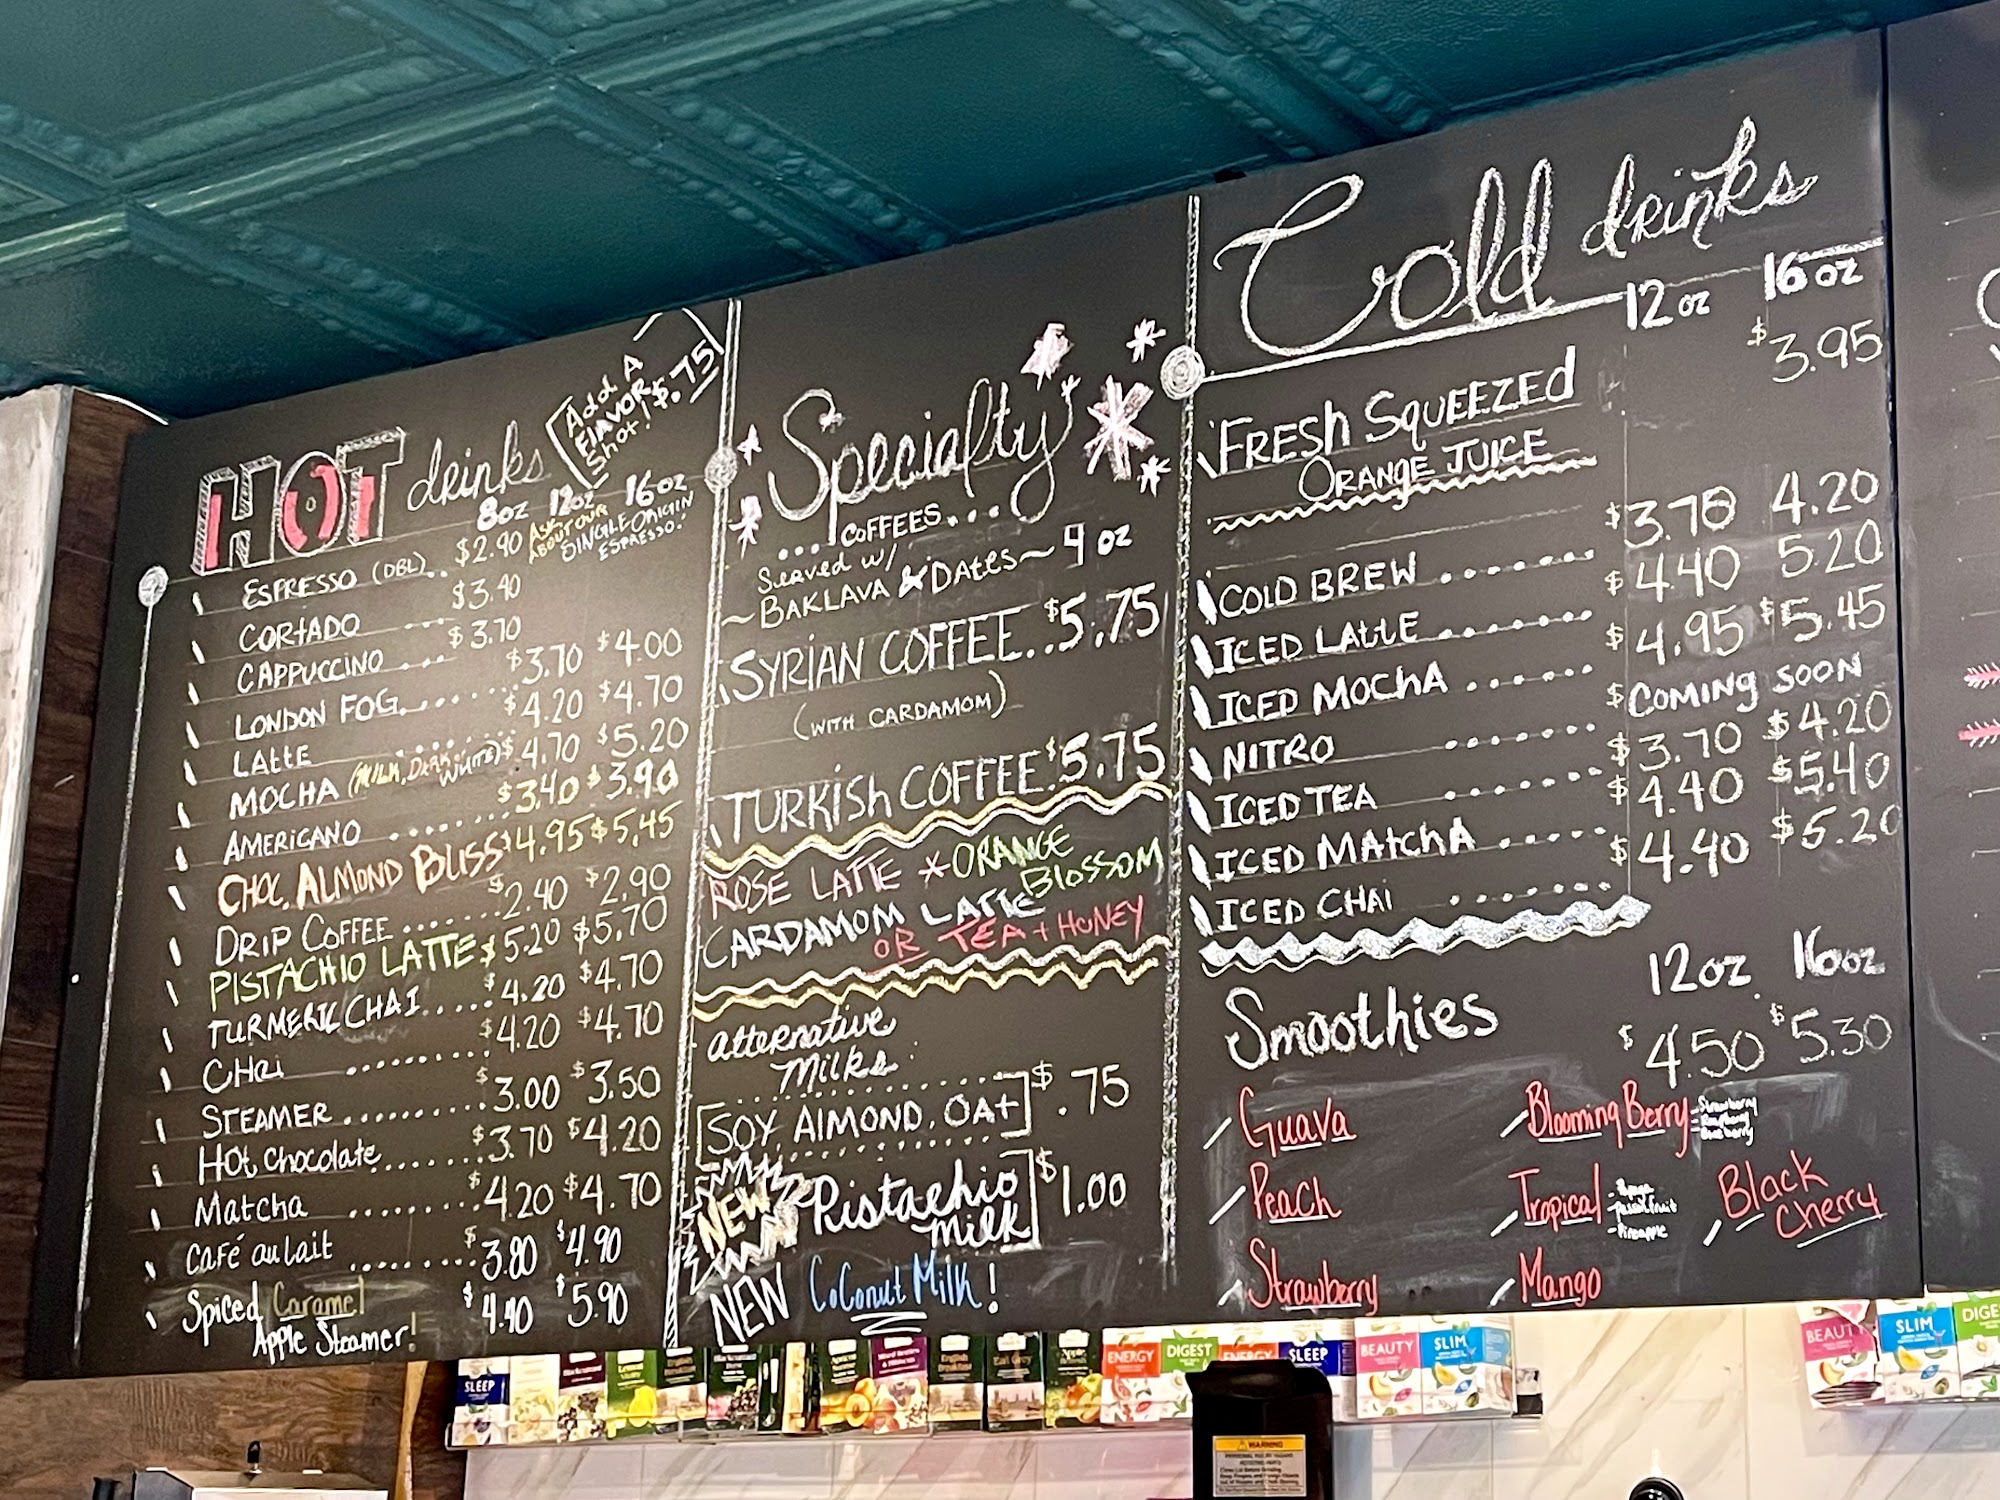 HOT drinks
Add A
FLAVOR
Shot! $.75
8oz 12oz 16oz
ASK
ABOUT OUR
SINGLE ORIGIN
ESPRESSO!
ESPRESSO (DBL).. $2.90
CORTADO ... $3.40
CAPPUCCINO .... $3.70
LONDON FOG....... $3.70 $4.00
LATTE ........ $4.20 $4.70
MOCHA (MILK, DARK, WHITE) $4.70 $5.20
AMERICANO ........ $3.40 $3.90
CHOC. ALMOND BLISS $4.95 $5.45
DRIP COFFEE ....... $2.40 $2.90
PISTACHIO LATTE $5.20 $5.70
TURMERIC CHAI.... $4.20 $4.70
CHai .......... $4.20 $4.70
STEAMER.......... $3.00 $3.50
HOt chocolate....... $3.70 $4.20
Matcha ......... $4.20 $4.70
Café au lait ......... $3.80 $4.90
Spiced Caramel
Apple Steamer! $4.40 $5.90
Specialty
... COFFEES...
Served w/
~BAKLAVA & DAtes~ 4 oz
SYRIAN COFFEE.. $5.75
(WITH CARDAMOM)
TURKISH COFFEE $5.75
ROSE LATTE * ORANGE
BLOSSOM
CARDAMOM LATTE
OR TEA + HONEY
alternative
milks:
[SOY, ALMOND, OAt] $.75
NEW Pistachio
milk] $1.00
NEW CoConut Milk!
Cold drinks
12 oz 16 oz
FRESH SQUEEZED $3.95
ORANGE JUICE
COLD BREW ....... $3.70 4.20
ICED LAttE ....... $4.40 5.20
ICED MOCHA ...... $4.95 $5.45
NITRO ....... $COMING SOON
ICED TEA ....... $3.70 $4.20
ICED MAtCHA ..... $4.40 $5.40
ICED CHAI ....... $4.40 $5.20
12oz. 16oz
Smoothies $4.50 $5.30
Guava
Peach
Strawberry
Blooming Berry
- Strawberry
- Raspberry
- Blueberry
Tropical
- Passionfruit
- Pineapple
Mango
Black
Cherry
SLEEP
ENERGY
DIGEST
ENERGY
SLEEP
BEAUTY
SLIM
BEAUTY
SLIM
DIGE
English
Breakfast
Earl Grey
WARNING